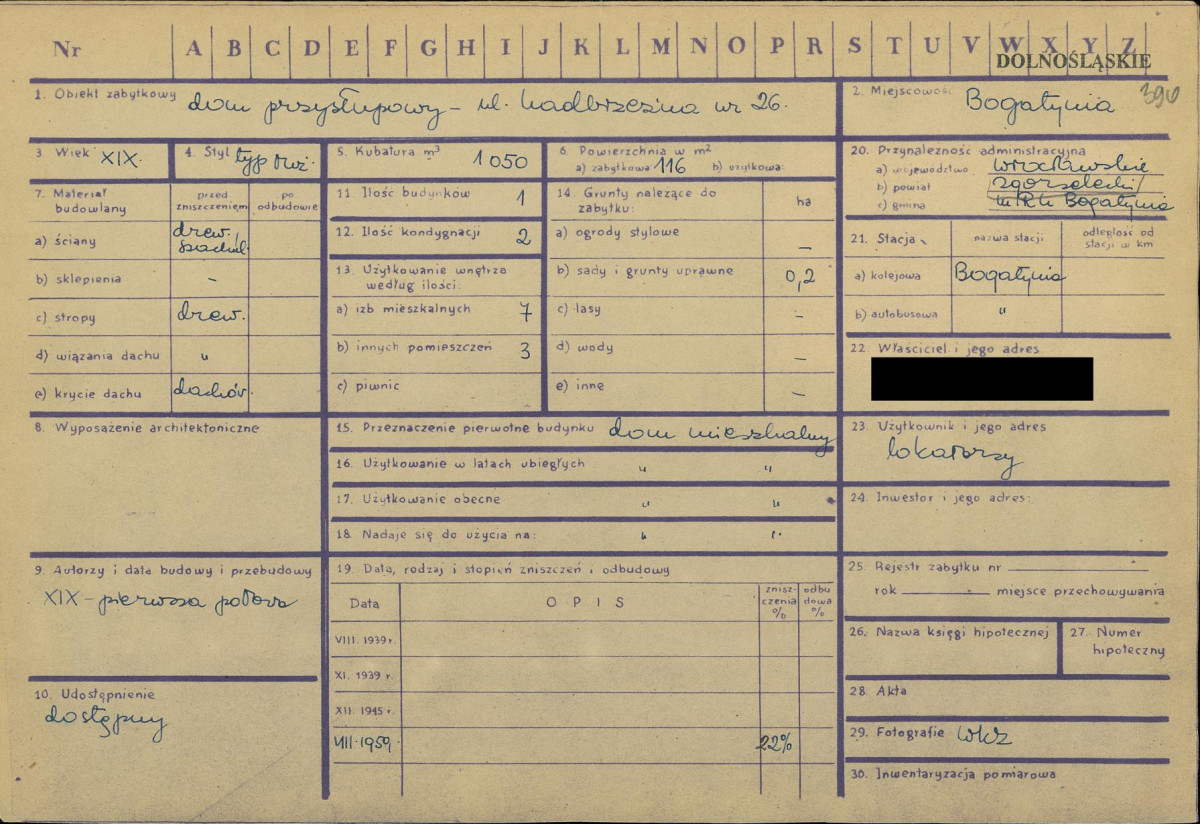 Nr A B C D E F G H I J K L M N O P R S T U V W X Y Z
DOLNOŚLĄSKIE
1. Obiekt zabytkowy dom przysłupowy – ul. Nadbrzeżna nr 26.
2. Miejscowość Bogatynia 390
3. Wiek XIX.
4. Styl typ
5. Kubatura m³ 1050
6. Powierzchnia w m²
a) zabytkowa 116 b) użytkowa:
7. Materiał budowlany
przed zniszczeniem
po odbudowie
a) ściany drew. szachul.
b) sklepienia –
c) stropy drew.
d) wiązania dachu "
e) krycie dachu dachów.
8. Wyposażenie architektoniczne
9. Autorzy i data budowy i przebudowy
XIX – pierwsza połowa
10. Udostępnienie
dostępny
11. Ilość budynków 1
12. Ilość kondygnacji 2
13. Użytkowanie wnętrza
według ilości:
a) izb mieszkalnych 7
b) innych pomieszczeń 3
c) piwnic
14. Grunty należące do
zabytku: ha
a) ogrody stylowe –
b) sady i grunty uprawne 0,2
c) lasy –
d) wody –
e) inne –
15. Przeznaczenie pierwotne budynku dom mieszkalny
16. Użytkowanie w latach ubiegłych " "
17. Użytkowanie obecne " "
18. Nadaje się do użycia na: " "
19. Data, rodzaj i stopień zniszczeń i odbudowy
Data OPIS znisz-czenia % odbu dowa %
VIII. 1939 r.
XI. 1939 r.
XII. 1945 r.
VIII-1959. 22%
20. Przynależność administracyjna
a) województwo wrocławskie
b) powiat zgorzelecki
c) gmina Bogatynia
21. Stacja nazwa stacji odległość od stacji w km
a) kolejowa Bogatynia
b) autobusowa "
22. Właściciel i jego adres
23. Użytkownik i jego adres
lokatorzy
24. Inwestor i jego adres:
25. Rejestr zabytku nr
rok miejsce przechowywania
26. Nazwa księgi hipotecznej
27. Numer hipoteczny
28. Akta
29. Fotografie WKZ
30. Inwentaryzacja pomiarowa